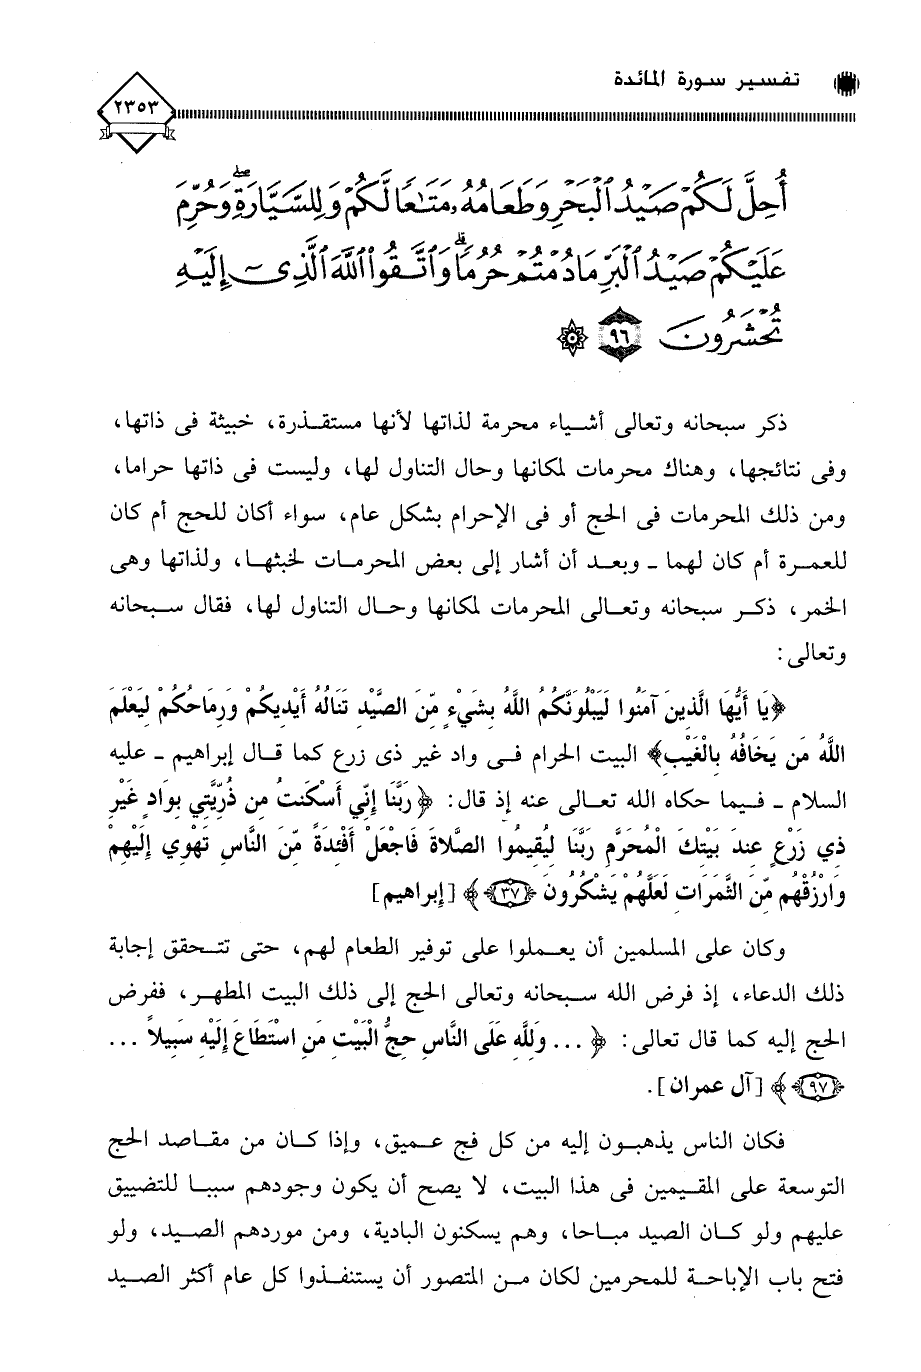 تفسير سورة المائدة
٢٣٥٣
أُحِلَّ لَكُمْ صَيْدُ ٱلْبَحْرِ وَطَعَامُهُۥ مَتَٰعًا لَّكُمْ وَلِلسَّيَّارَةِ ۖ وَحُرِّمَ
عَلَيْكُمْ صَيْدُ ٱلْبَرِّ مَا دُمْتُمْ حُرُمًا ۗ وَٱتَّقُوا۟ ٱللَّهَ ٱلَّذِىٓ إِلَيْهِ
تُحْشَرُونَ ٩٦
ذكر سبحانه وتعالى أشياء محرمة لذاتها لأنها مستقذرة، خبيثة فى ذاتها،
وفى نتائجها، وهناك محرمات لمكانها وحال التناول لها، وليست فى ذاتها حراما،
ومن ذلك المحرمات فى الحج أو فى الإحرام بشكل عام، سواء أكان للحج أم كان
للعمرة أم كان لهما ـ وبعد أن أشار إلى بعض المحرمات لخبثها، ولذاتها وهى
الخمر، ذكر سبحانه وتعالى المحرمات لمكانها وحال التناول لها، فقال سبحانه
وتعالى:
﴿يَا أَيُّهَا الَّذِينَ آمَنُوا لَيَبْلُوَنَّكُمُ اللَّهُ بِشَيْءٍ مِّنَ الصَّيْدِ تَنَالُهُ أَيْدِيكُمْ وَرِمَاحُكُمْ لِيَعْلَمَ
اللَّهُ مَن يَخَافُهُ بِالْغَيْبِ﴾ البيت الحرام فى واد غير ذى زرع كما قال إبراهيم ـ عليه
السلام ـ فيما حكاه الله تعالى عنه إذ قال: ﴿رَبَّنَا إِنِّي أَسْكَنتُ مِن ذُرِّيَّتِي بِوَادٍ غَيْرِ
ذِي زَرْعٍ عِندَ بَيْتِكَ الْمُحَرَّمِ رَبَّنَا لِيُقِيمُوا الصَّلاةَ فَاجْعَلْ أَفْئِدَةً مِّنَ النَّاسِ تَهْوِي إِلَيْهِمْ
وَارْزُقْهُم مِّنَ الثَّمَرَاتِ لَعَلَّهُمْ يَشْكُرُونَ ﴿٣٧﴾﴾ [إبراهيم]
وكان على المسلمين أن يعملوا على توفير الطعام لهم، حتى تتحقق إجابة
ذلك الدعاء، إذ فرض الله سبحانه وتعالى الحج إلى ذلك البيت المطهر، ففرض
الحج إليه كما قال تعالى: ﴿ ... وَلِلَّهِ عَلَى النَّاسِ حِجُّ الْبَيْتِ مَنِ اسْتَطَاعَ إِلَيْهِ سَبِيلاً ...
﴿٩٧﴾﴾ [آل عمران].
فكان الناس يذهبون إليه من كل فج عميق، وإذا كان من مقاصد الحج
التوسعة على المقيمين فى هذا البيت، لا يصح أن يكون وجودهم سببا للتضييق
عليهم ولو كان الصيد مباحا، وهم يسكنون البادية، ومن موردهم الصيد، ولو
فتح باب الإباحة للمحرمين لكان من المتصور أن يستنفذوا كل عام أكثر الصيد